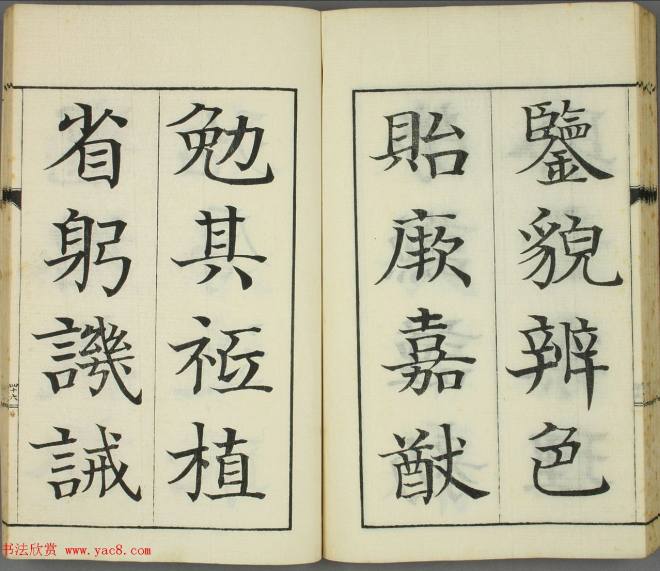 鑒貌辨色
貽厥嘉猷
勉其祗植
省躬譏誡
十六
书法欣赏 www.yac8.com